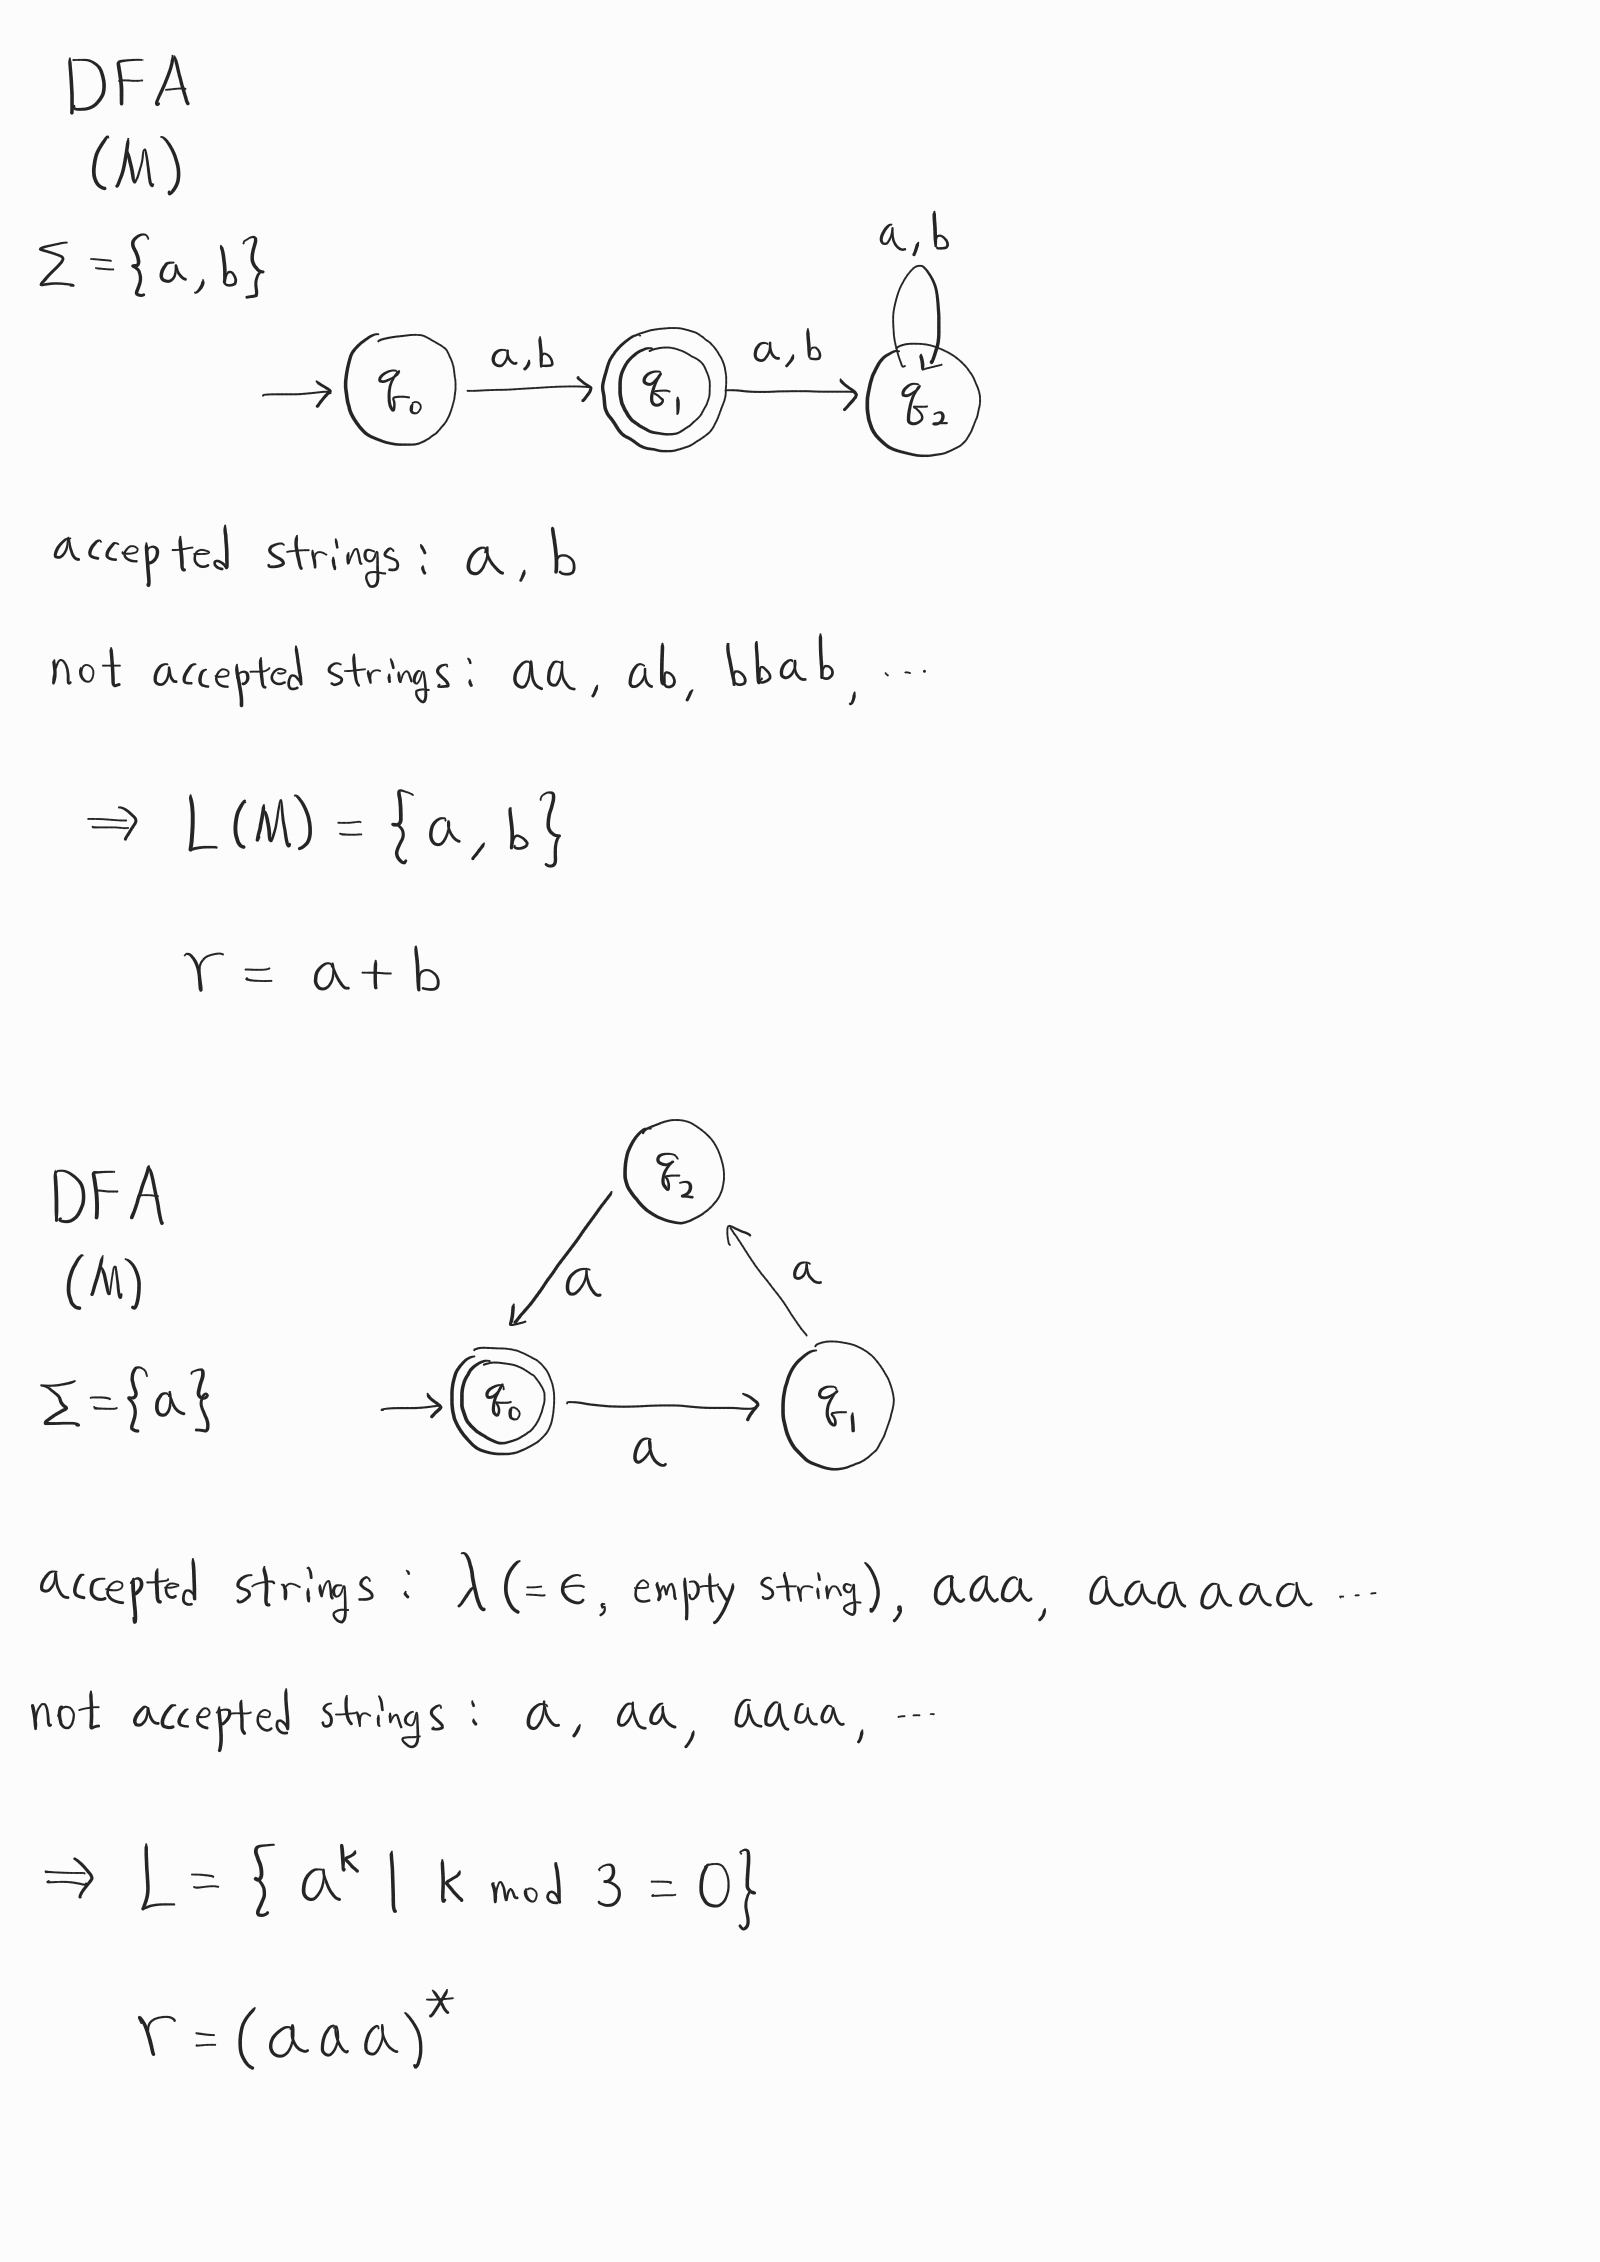 DFA
(M)
Σ = {a, b}
a, b
a, b
a, b
q₀
q₁
q₂
accepted strings : a, b
not accepted strings : aa, ab, bbab, ...
⇒ L(M) = {a, b}
r = a + b
DFA
(M)
q₂
a
a
Σ = {a}
q₀
q₁
a
accepted strings : λ (= ϵ, empty string), aaa, aaaaaa ...
not accepted strings : a, aa, aaaa, ...
⇒ L = { aᵏ | k mod 3 = 0}
r = (aaa)*